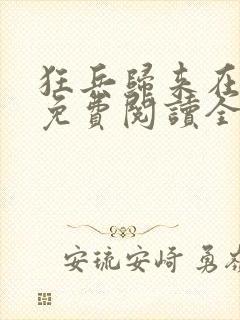 狂兵歸來在
免費閱讀全
安琉安崎 勇